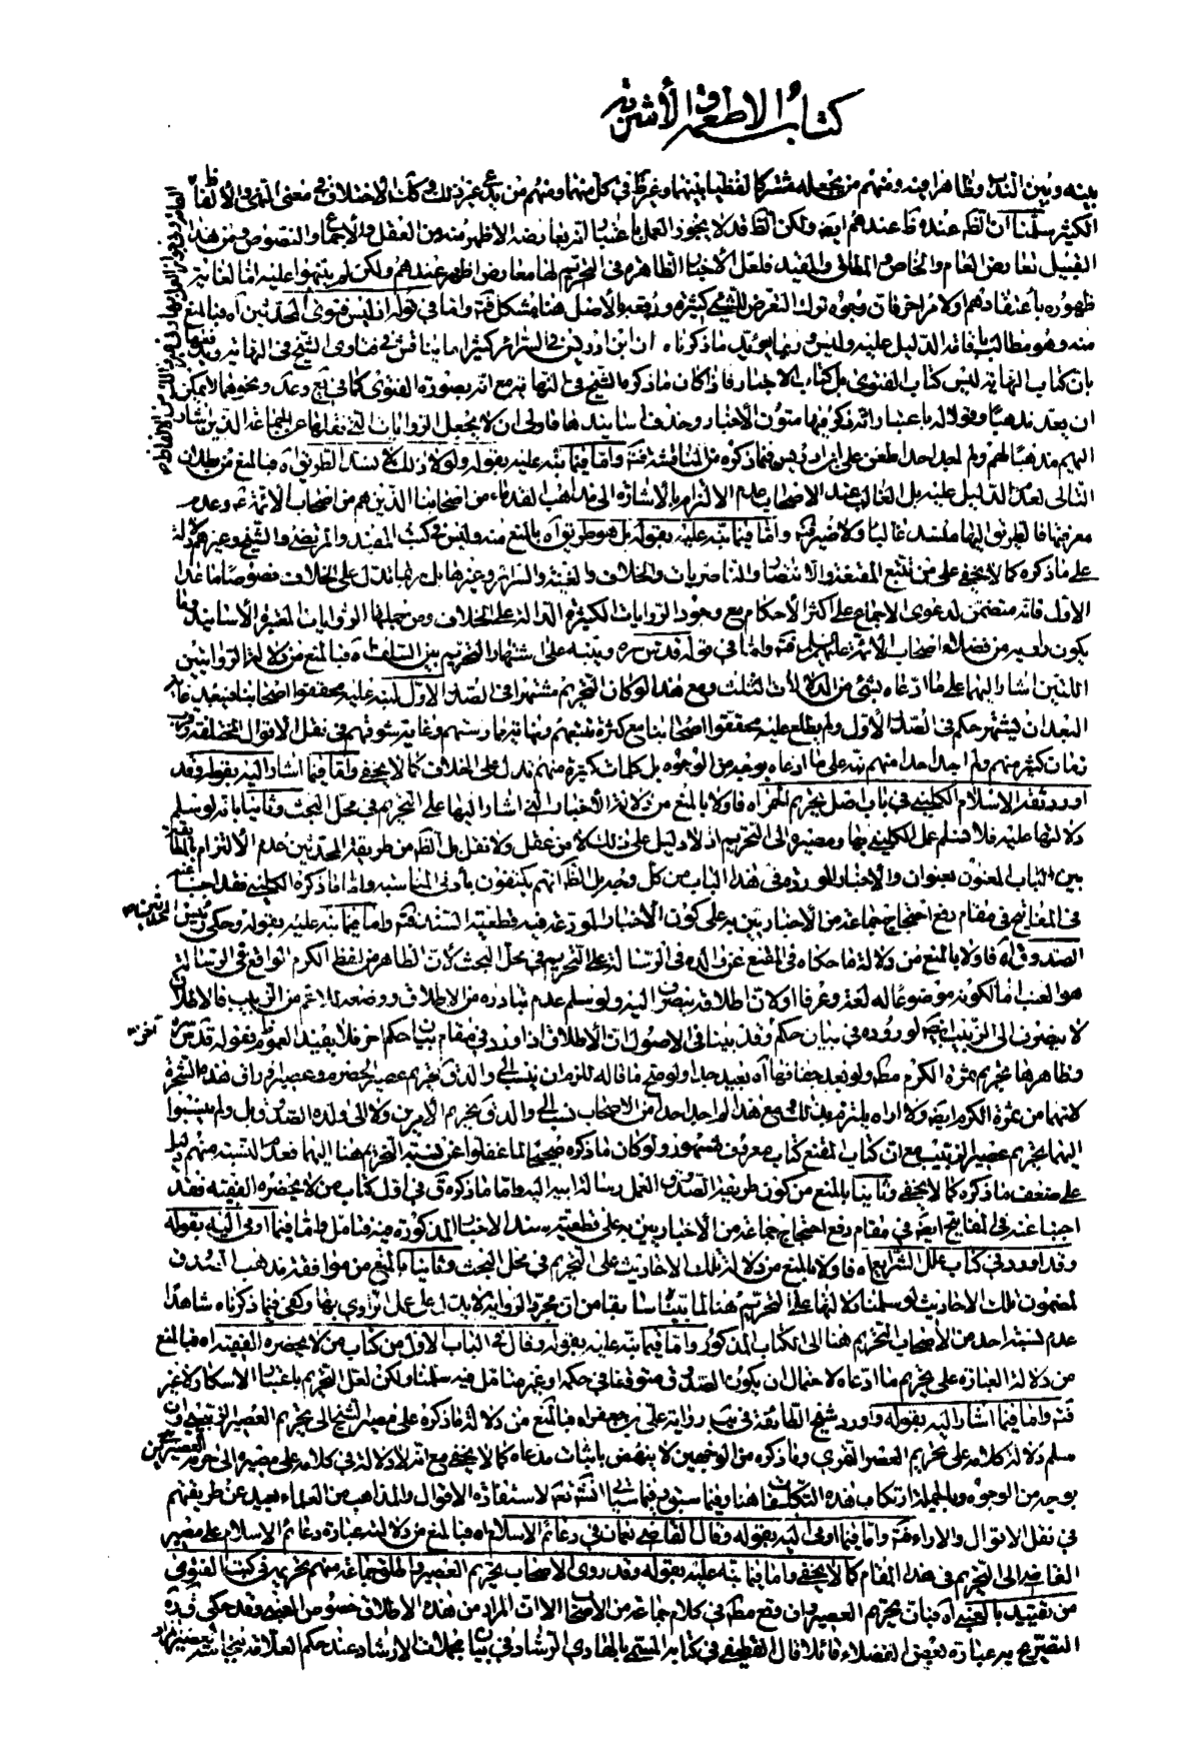 كتاب الاطعمة والأشربة
بينه وبين الندب وظاهرا فيه ومنهم من يجعله مشتركا لفظيا بينهما وغير ظ في كل منهما ومنهم من يدعى غير ذلك وكك الأختلاف في معنى النهى والألفاظ
الكثير سلمنا ان الظ عنده ظ عندهم ايضا ولكن الظ قد لا يجوز العمل باعتبار التعارضه الأظهر منه من العقل والأجماع والنصوص ومن هذا
القبيل تعارض العام والخاص والمطلق والمقيد فلعل الأخبار الظاهرة في التحريم لها معارض اظهر عندهم ولكن لم يتنبهوا عليه اما لغاية
ظهوره باعتقادهم او لامر اخر فان وجوه ترك التعرض للشيء كثيرة ورفعه بالأصل هنا مشكل فتم واما في قوله ان ليس فتوى المحدثين اه فبالمنع
منه وهو مطالب باقامة الدليل عليه وليس وربما يؤيد ماذكرنا ان ابن ادريس في السرائر كثيرا ما يناقش في فتاوى الشيخ في النهاية
بان كتاب النهاية ليس كتاب الفتوى بل كتاب الاخبار فاذا كان ماذكره الشيخ في النهاية مع انه بصورة الفتوى كما في يع وعد ونحوهما لايمكن
ان يعد مذهبا وقولا له باعتبار انه ذكر فيها متون الأخبار وحذف اسانيدها فاولى ان لا يجعل الروايات التي نقلها عن الجماعة الذين اشار
اليهم مذهبا لهم ولم نجد احدا طعن على ابن ادريس فيما ذكره من المناقشة فتم واما فيما نبه عليه بقوله ولولا ذلك لانسد الطريق اه فبالمنع من بطلان
التالى لعدم الدليل عليه بل الغالب عند الاصحاب عدم الالتزام بالأشارة الى مذاهب القدماء من اصحابنا الذين هم من اصحاب الائمة ع وعدم
معرفتها فالطريق اليها منسد غالبا ولاضير فيه واما فيما نبه عليه بقوله بل هو طريق اه بالمنع منه وليس في كتب المفيد والمرتضى والشيخ وغيرهم دلالة
على ماذكره كما لا يخفى على من تتبع المقنعة والانتصار والناصريات والخلاف والغنية والسرائر وغيرها بل ربما تدل على الخلاف خصوصا ماعدا
الاول فانه متضمن لدعوى الاجماع على اكثر الأحكام مع وجود الروايات الكثيرة الدالة على الخلاف ومن جملتها الروايات المعتبرة الأسانيد وما
يكون راويه من فضلاء اصحاب الائمة عليهم السلام فتم واما في قوله قدس سره وينبه على اشتهار التحريم بين السلف اه فبالمنع من دلالة الروايتين
اللتين اشار اليهما على ما ادعاه بشئ من الدلالات الثلث ومع هذا لو كان التحريم مشتهرا في الصدر الاول لنبه عليه محققوا اصحابنا لبعده غاية
البعد ان يشتهر حكم في الصدر الأول ولم يطلع عليه محققوا اصحابنا مع كثرة تتبعهم ونهاية ممارستهم وغاية شوقهم في نقل الاقوال المختلفة
زمان كثير منهم ولم اجد احدا منهم نبه على ما ادعاه بوجه من الوجوه بل كلمات كثيرة منهم تدل على الخلاف كما لا يخفى واما فيما اشار اليه بقوله وقد
اورد ثقة الاسلام الكليني في باب اصل تحريم الخمر اه فاولا بالمنع من دلالة الأخبار التي اشار اليها على التحريم في محل البحث وثانيا بانه لو سلم
دلالتها عليه فلا نسلم عمل الكليني بها ومصيره الى التحريم اذ لا دليل على ذلك لا من عقل ولا نقل بل الظ من طريقة المحدثين عدم الالتزام بالمطابقة
بين الباب المعنون بعنوان والاخبار الموردة في هذا الباب من كل وجه بل الظ انهم يكتفون بأدنى المناسبة واما ماذكره الكليني فقد اجبنا عنه
في المفاتيح في مقام دفع احتجاج جماعة من الأخباريين به على كون الأخبار المودعة فيه قطعية السند فتم واما فيما نبه عليه بقوله وحكى رئيس المحدثين
الصدوق اه فاولا بالمنع من دلالة ما حكاه في المقنع عن والده في الرسالة على التحريم في محل البحث لان الظاهر من لفظ الكرم الواقع في الرسالة
هو العنب اما لكونه موضوعا له لغة وعرفا او لان اطلاقه ينصرف اليه ولو سلم عدم تبادره من الاطلاق ووضعه للاعم من الزبيب فالاطلاق
لا ينصرف الى الزبيب ايضا لوروده في بيان حكم اخر وقد بينا في الاصول ان الأطلاق اذا ورد في مقام بيان حكم اخر فلا يفيد العموم بقوله قدس سره
وظاهرها تحريم ثمرة الكرم مطلقا ولو بعد جفافها اه بعيد جدا ولو صح ما قاله للزم ان ينسب الى والد ق تحريم عصير الحصرم وعصير اوراق هذه الشجرة
لانهما من ثمرة الكرم ايضا ولا اراه يلتزم بذلك ومع هذا لم اجد احدا من الاصحاب نسب الى والد ق تحريم الأمرين ولا الى ولده الصدوق بل ولم ينسبوا
اليهما تحريم عصير الزبيب مع ان كتاب المقنع كتاب معروف مشهور ولو كان ماذكره صحيحا لما غفلوا عن نسبة التحريم هنا اليهما فعدم النسبة منهم دليل
على ضعف ماذكره كما لا يخفى وثانيا بالمنع من كون طريقة الصدوق العمل برسالة ابيه اليه واما ماذكره ق في اول كتاب من لا يحضره الفقيه فقد
اجبنا عنه في المفاتيح ايضا في مقام دفع احتجاج جماعة من الأخباريين به على قطعية سند الاخبار المذكورة فيه فتامل واما فيما اومى اليه بقوله
وقد اورد في كتاب علل الشرايع اه فاولا بالمنع من دلالة تلك الاحاديث على التحريم في محل البحث وثانيا بالمنع من موافقة مذهب الصدوق
لمضمون تلك الاحاديث لو سلمنا دلالتها على التحريم هنا لما بيناه سابقا من ان مجرد الرواية لا يدل على عمل الراوي بها وكفى فيما ذكرناه شاهدا
عدم نسبة احد من الأصحاب التحريم هنا الى الكتاب المذكور واما فيما نبه عليه بقوله وقال في الباب الاول من كتاب من لا يحضره الفقيه اه فبالمنع
من دلالة العبارة على تحريم ما ادعاه لاحتمال ان يكون الصدوق متوقفا في حكمه وغير متامل فيه سلمنا ولكن لعل التحريم باعتبار الاسكار لا غير
فتم واما فيما اشار اليه بقوله واورد شيخ الطائفة في يب رواية على بن جعفر اه فبالمنع من دلالة ماذكره على مصير الشيخ الى تحريم العصير الزبيبى وان
سلم دلالة كلامه على تحريم العصير التمري وماذكره من الوجهين لا ينهض باثبات مدعاه كما لا يخفى مع انه لا دلالة في كلامه على مصيره الى حرمة العصيرين
بوجه من الوجوه وبالجملة ارتكاب هذه التكلفات هنا وفيما سبق وفيما سياتى انشاء الله تعالى لاستفادة الاقوال والمذاهب من العلماء بعيد عن طريقتهم
في نقل الاقوال والاراء فتم واما فيما اومى اليه بقوله وقال القاضي نعمان في دعائم الاسلام اه فبالمنع من دلالة عبارة دعائم الاسلام على مصير
القاضى الى التحريم في هذا المقام كما لا يخفى واما فيما نبه عليه بقوله وقد روى الاصحاب تحريم العصير واطلق جماعة منهم تحريمه في كتب الفتوى
من تقييد بالعنبى اه فبان تحريم العصير وان وقع مطلقا في كلام جماعة من الأصحاب الا ان المراد من هذه الاطلاق خصوص العنبى وقد حكى في ئق
التصريح به عبارة بعض الفضلاء قائلا قال القطيفى في كتابه المسمى بالهادي الى الرشاد في بيان مجملات الارشاد عند حكم العلامة بنجاسة العصير